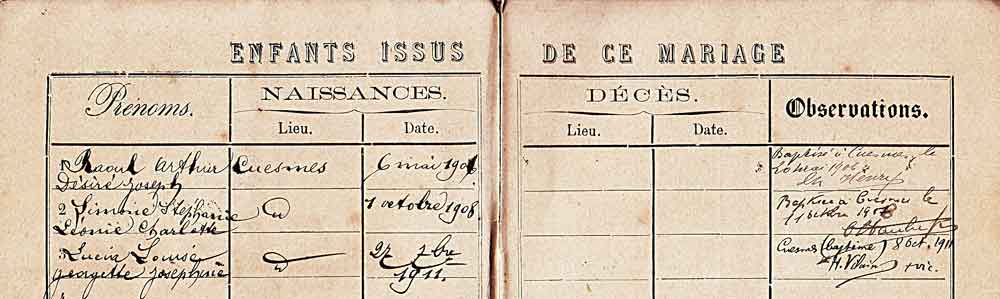 ENFANTS ISSUS DE CE MARIAGE
Prénoms.
NAISSANCES.
Lieu. Date.
DÉCÈS.
Lieu. Date.
Observations.
Raoul Arthur
Désiré Joseph
Cuesmes
6 mai 190
Baptisé à Cuesmes le
mai 190
Henry
2 Simone Stephanie
Léonie Charlotte
1 octobre 1908.
Baptisée à Cuesmes le
octobre 1908
Lucia Louise
georgette Josephine
27 7bre
1911.
Cuesmes (baptême) 8 oct. 1911
H. Vilain vic.